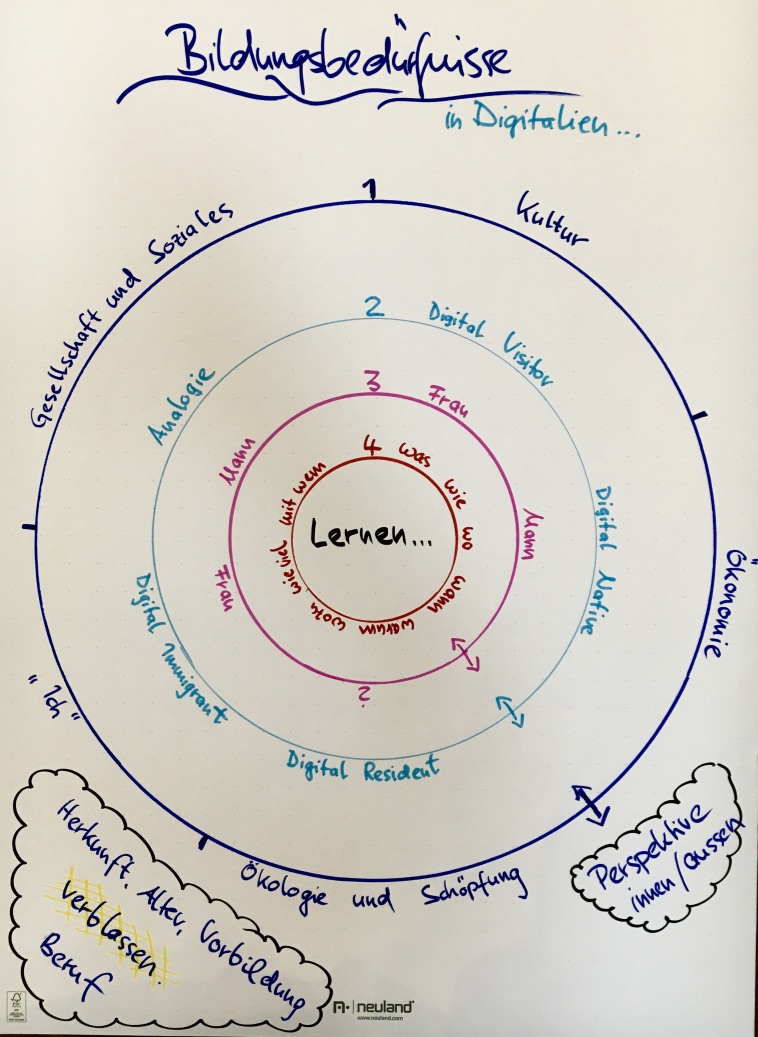 Bildungsbedürfnisse
in Digitalien...
1
Kultur
Ökonomie
Ökologie und Schöpfung
"Ich"
Gesellschaft und Soziales
2
Digital Visitor
Digital Native
Digital Resident
Digital Immigrant
Analogie
3
Frau
Mann
?
Frau
Mann
4
was
wie
wo
wann
warum
wozu
wie viel
mit wem
Lernen...
Herkunft. Alter, Vorbildung
verblassen.
Beruf
Perspektive
innen/aussen
neuland
www.neuland.com